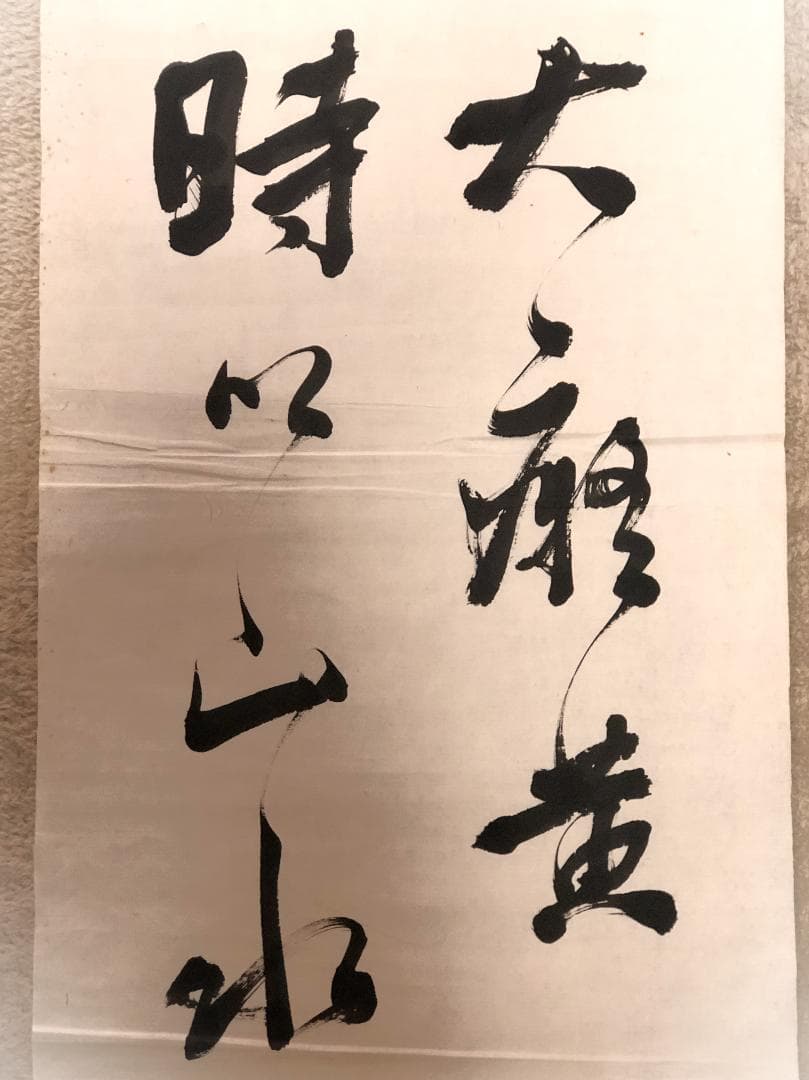 大癡黄
時以山水